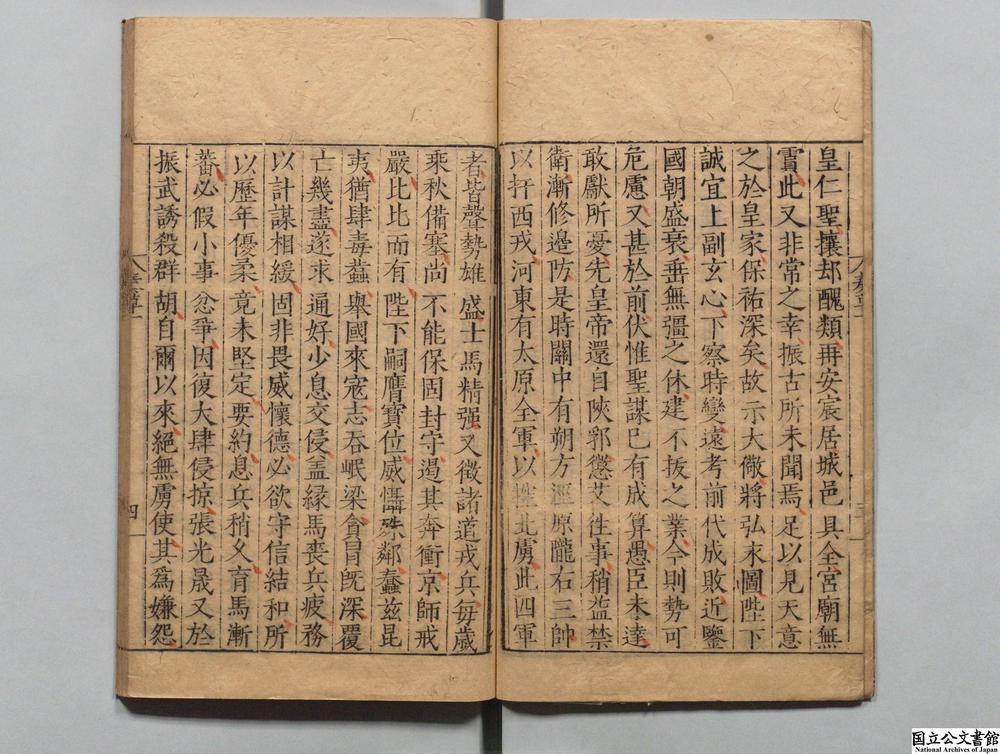 皇仁聖攘却醜類再安宸居城邑具全宮廟無
霣此又非常之幸振古所未聞焉足以見天意
之於皇家保祐深矣故示大儆將弘永圖陛下
誠宜上副玄心下察時變遠考前代成敗近鑒
國朝盛衰垂無疆之休建不拔之業今則勢可
危慮又甚於前伏惟聖謀已有成算愚臣未達
敢獻所憂先皇帝還自陝郛懲艾往事稍益禁
衛漸修邊防是時關中有朔方涇原隴右三帥
以扞西戎河東有太原全軍以北虜此四軍
者皆聲勢雄盛士馬精强又徵諸道戎兵每歲
乘秋備塞尚不能保固封守遏其奔衝京師戒
嚴比比而有陛下嗣膺寶位威懾殊鄰蠢茲昆
夷猶肆毒蠚舉國來寇志吞岷梁貪冒旣深覆
亡幾盡遂求通好少息交侵盖緣馬喪兵疲務
以計謀相緩固非畏威懷德必欲守信結和所
以歷年優柔竟未堅定要約息兵稍久育馬漸
蕃必假小事忿爭因復大肆侵掠張光晟又於
振武誘殺群胡自爾以來絕無虜使其爲嫌怨
奏草一
四
国立公文書館
National Archives of Japan